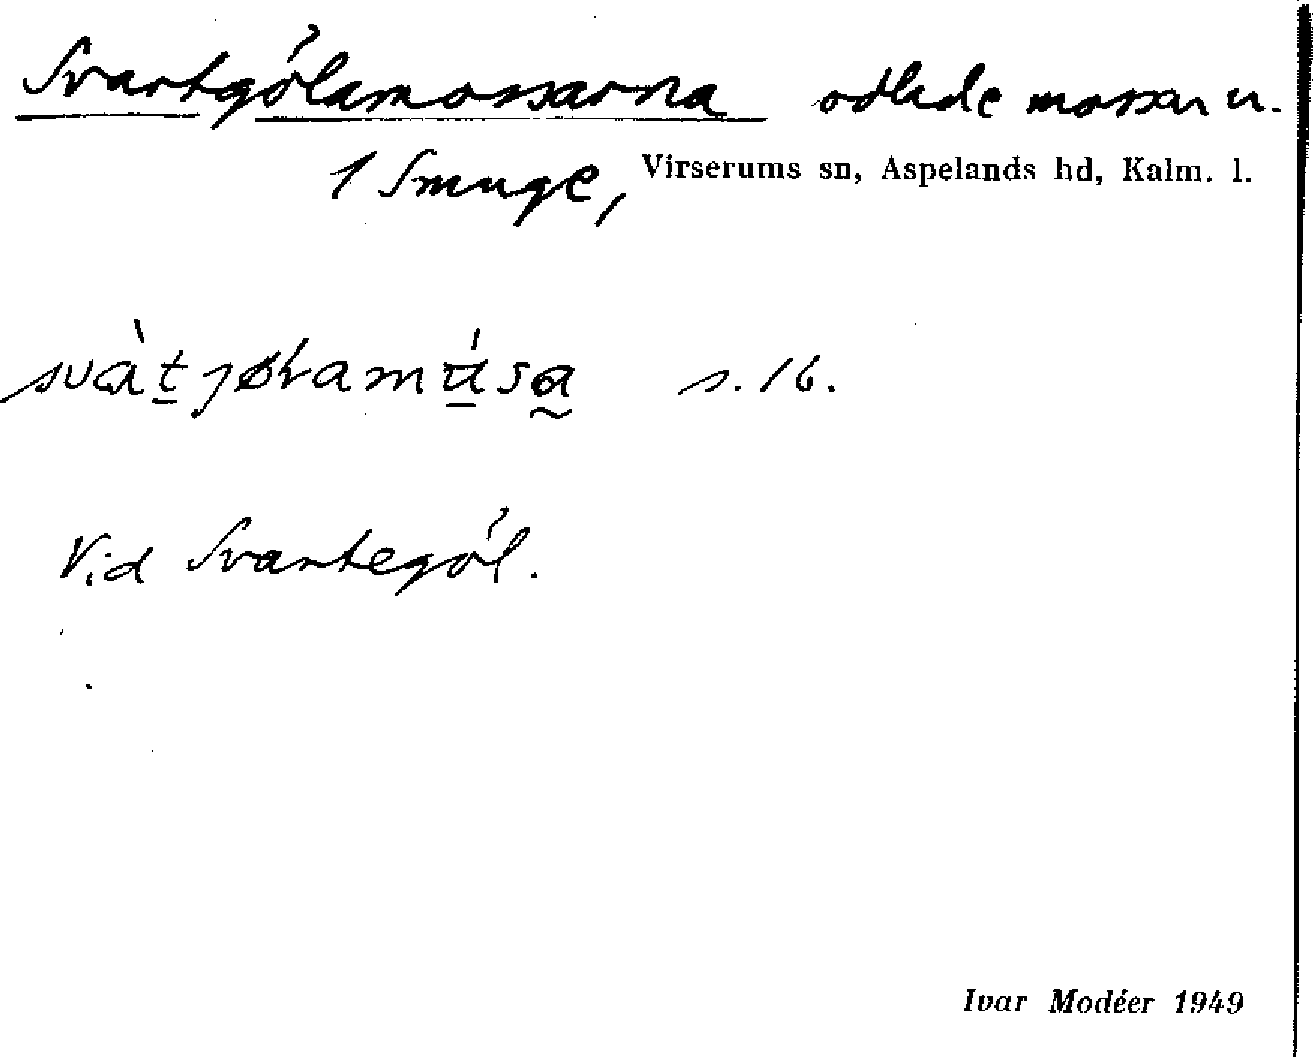 Svartgólamossarna odlade mossar u.
1 Smuge, Virserums sn, Aspelands hd, Kalm. l.
s. 16.
Vid Svartegól.
Ivar Modéer 1949